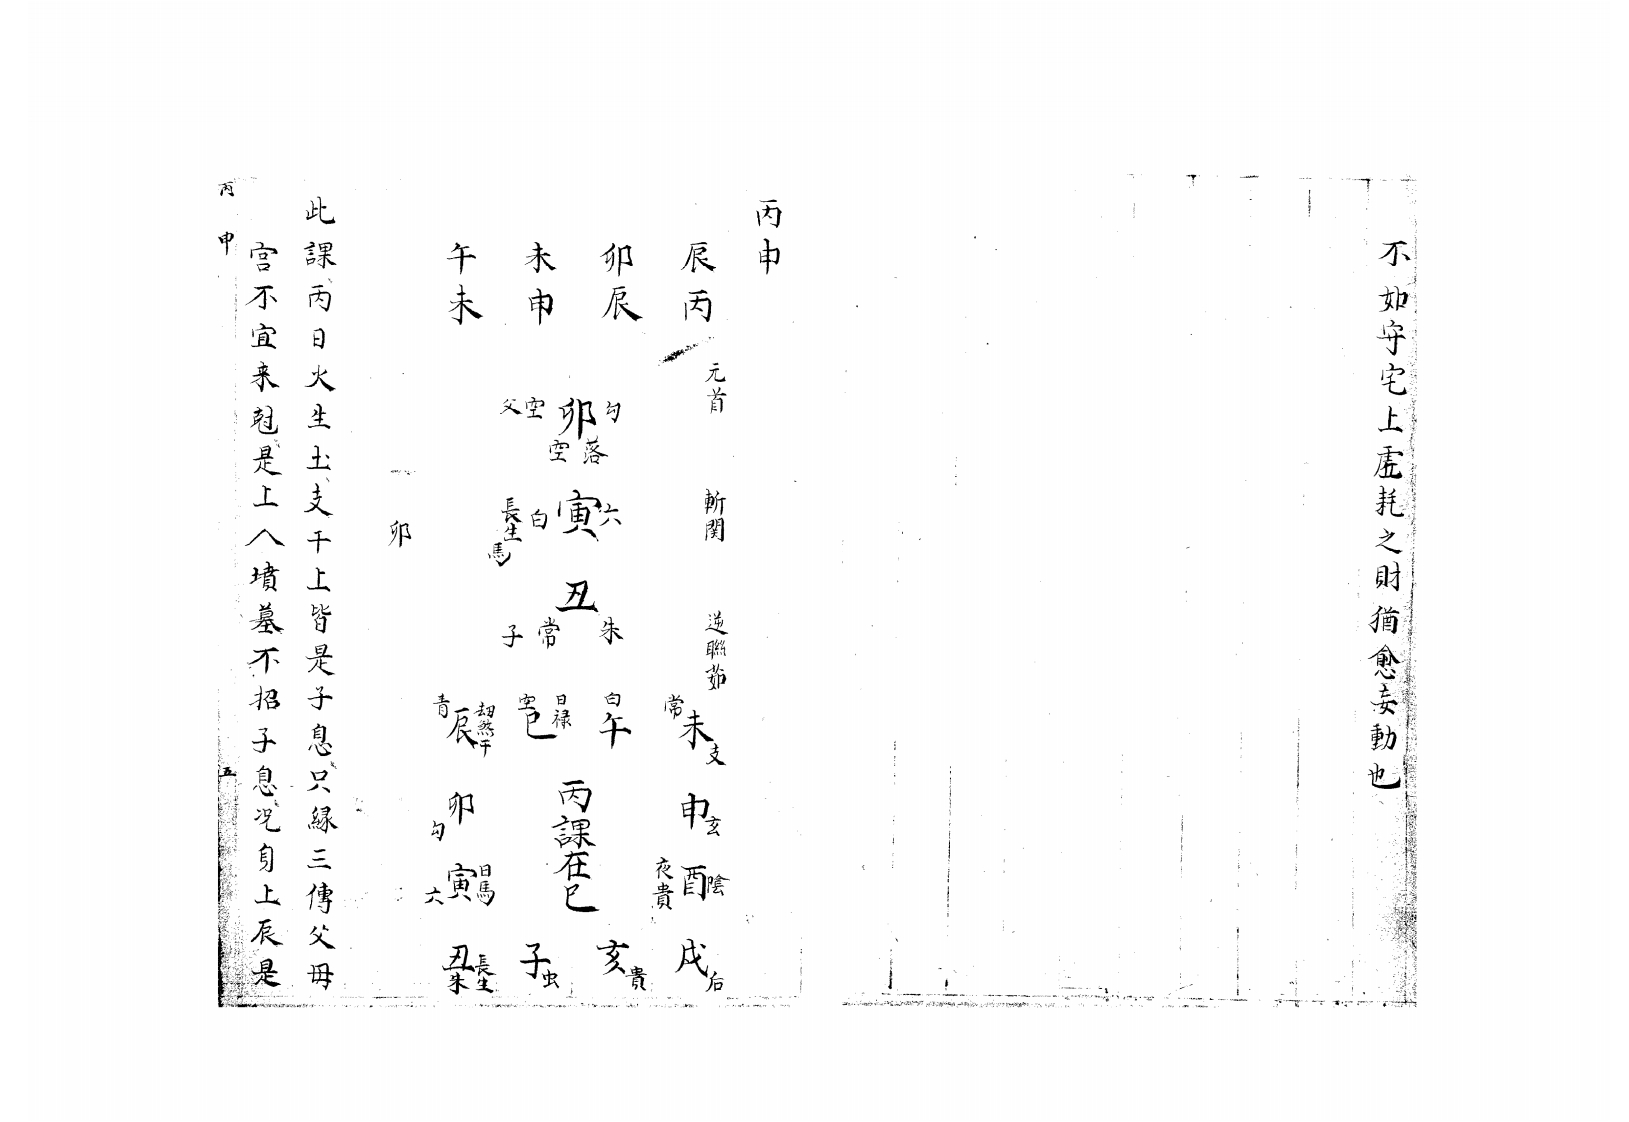 不如守宅上虛耗之財猶愈妄動也
丙申
辰丙
卯辰
未申
午未
元首
斬関
逆聯茹
勾卯空父
落空
六寅白長生馬
丑
朱常子
常未支
白午
日禄巳空
劫煞干辰青
申玄
丙課在巳
卯勾
酉陰夜貴
日馬寅六
戌后
亥貴
子虫
長生丑朱
卯
此課丙日火生土支干上皆是子息只緣三傳父母
宮不宜来尅是上人墳墓不招子息况自上辰是
丙申
五